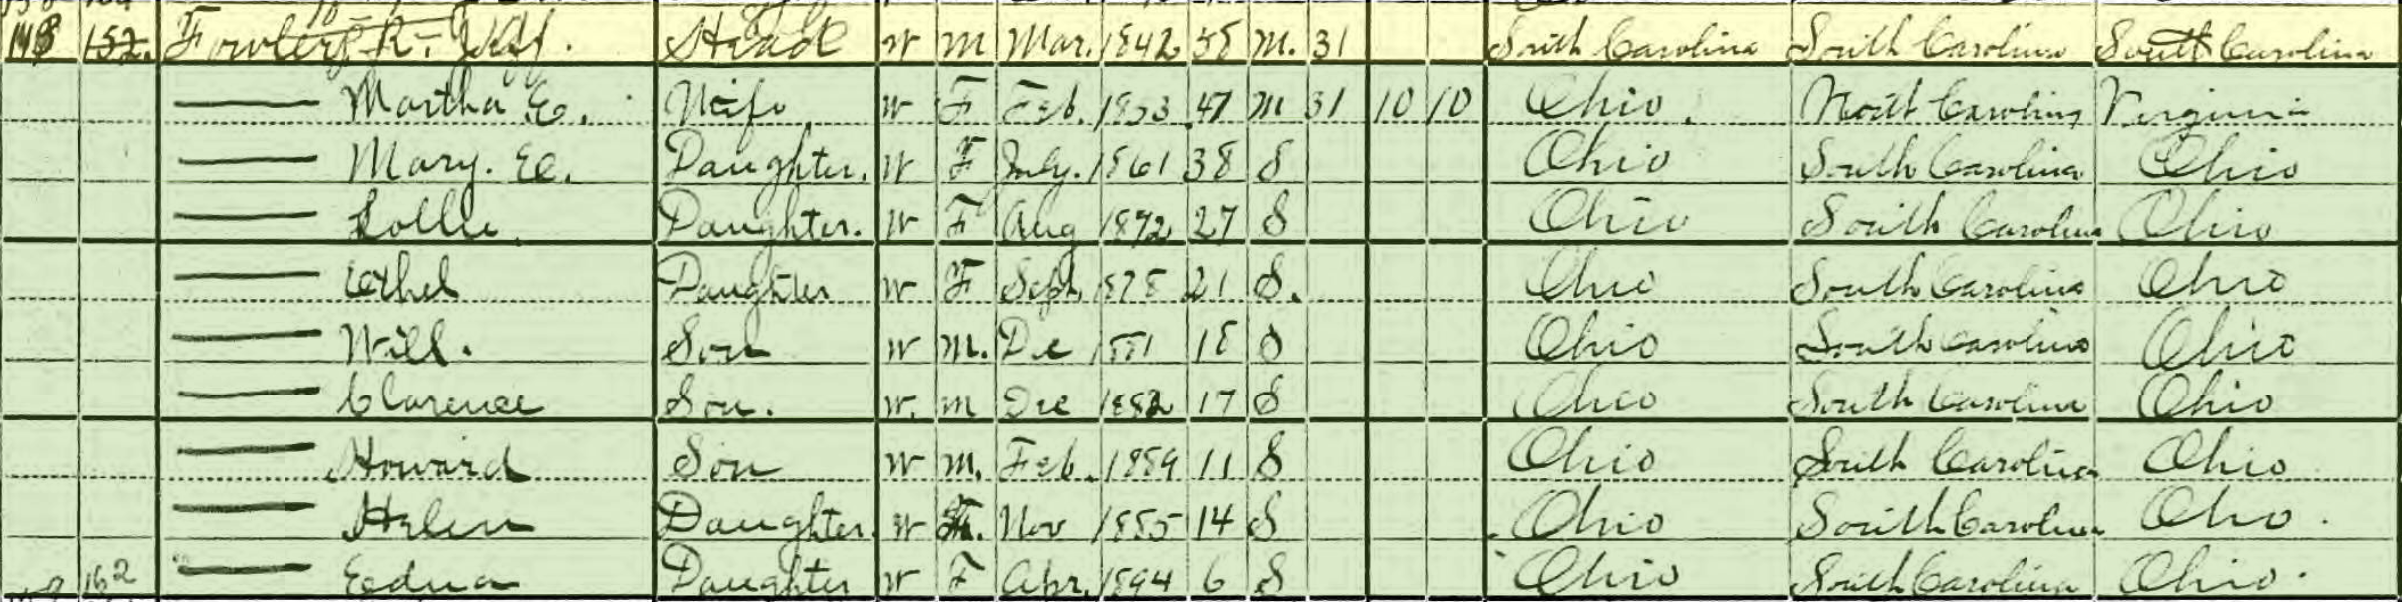 148 152. Fowler, R. Jeff. Head W M Mar. 1842 58 M. 31 South Carolina South Carolina South Carolina
Martha E. Wife W F Feb. 1853 47 M 31 10 10 Ohio. North Carolina Virginia
Mary. E. Daughter. W F July. 1861 38 S Ohio South Carolina Ohio
Lollie. Daughter. W F Aug 1872 27 S Ohio South Carolina Ohio
Ethel Daughter W F Sept. 1878 21 S. Ohio South Carolina Ohio
Will. Son W M. De 1881 18 S Ohio South Carolina Ohio
Clarence Son. W. M Dec 1882 17 S Ohio South Carolina Ohio
Howard Son W M. Feb. 1889 11 S Ohio South Carolina Ohio
Helen Daughter. W F. Nov 1885 14 S Ohio South Carolina Ohio.
162 Edna Daughter W F Apr. 1894 6 S Ohio South Carolina Ohio.